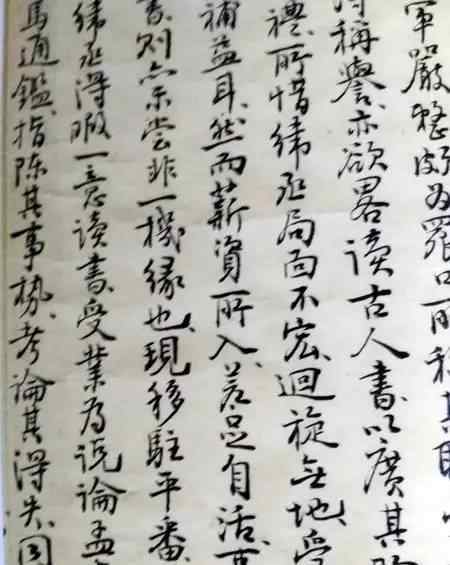 軍嚴整頗為眾口所稱其
稱譽亦欲畧讀古人書以廣其
禮所惜緯丞局面不宏迴旋無地受
補益耳然而薪資所入差足自活
書則亦嘗非一機緣也現移駐平番
緯丞得暇一意讀書受業為説論孟
馬通鑑指陳其事勢考論其得失因